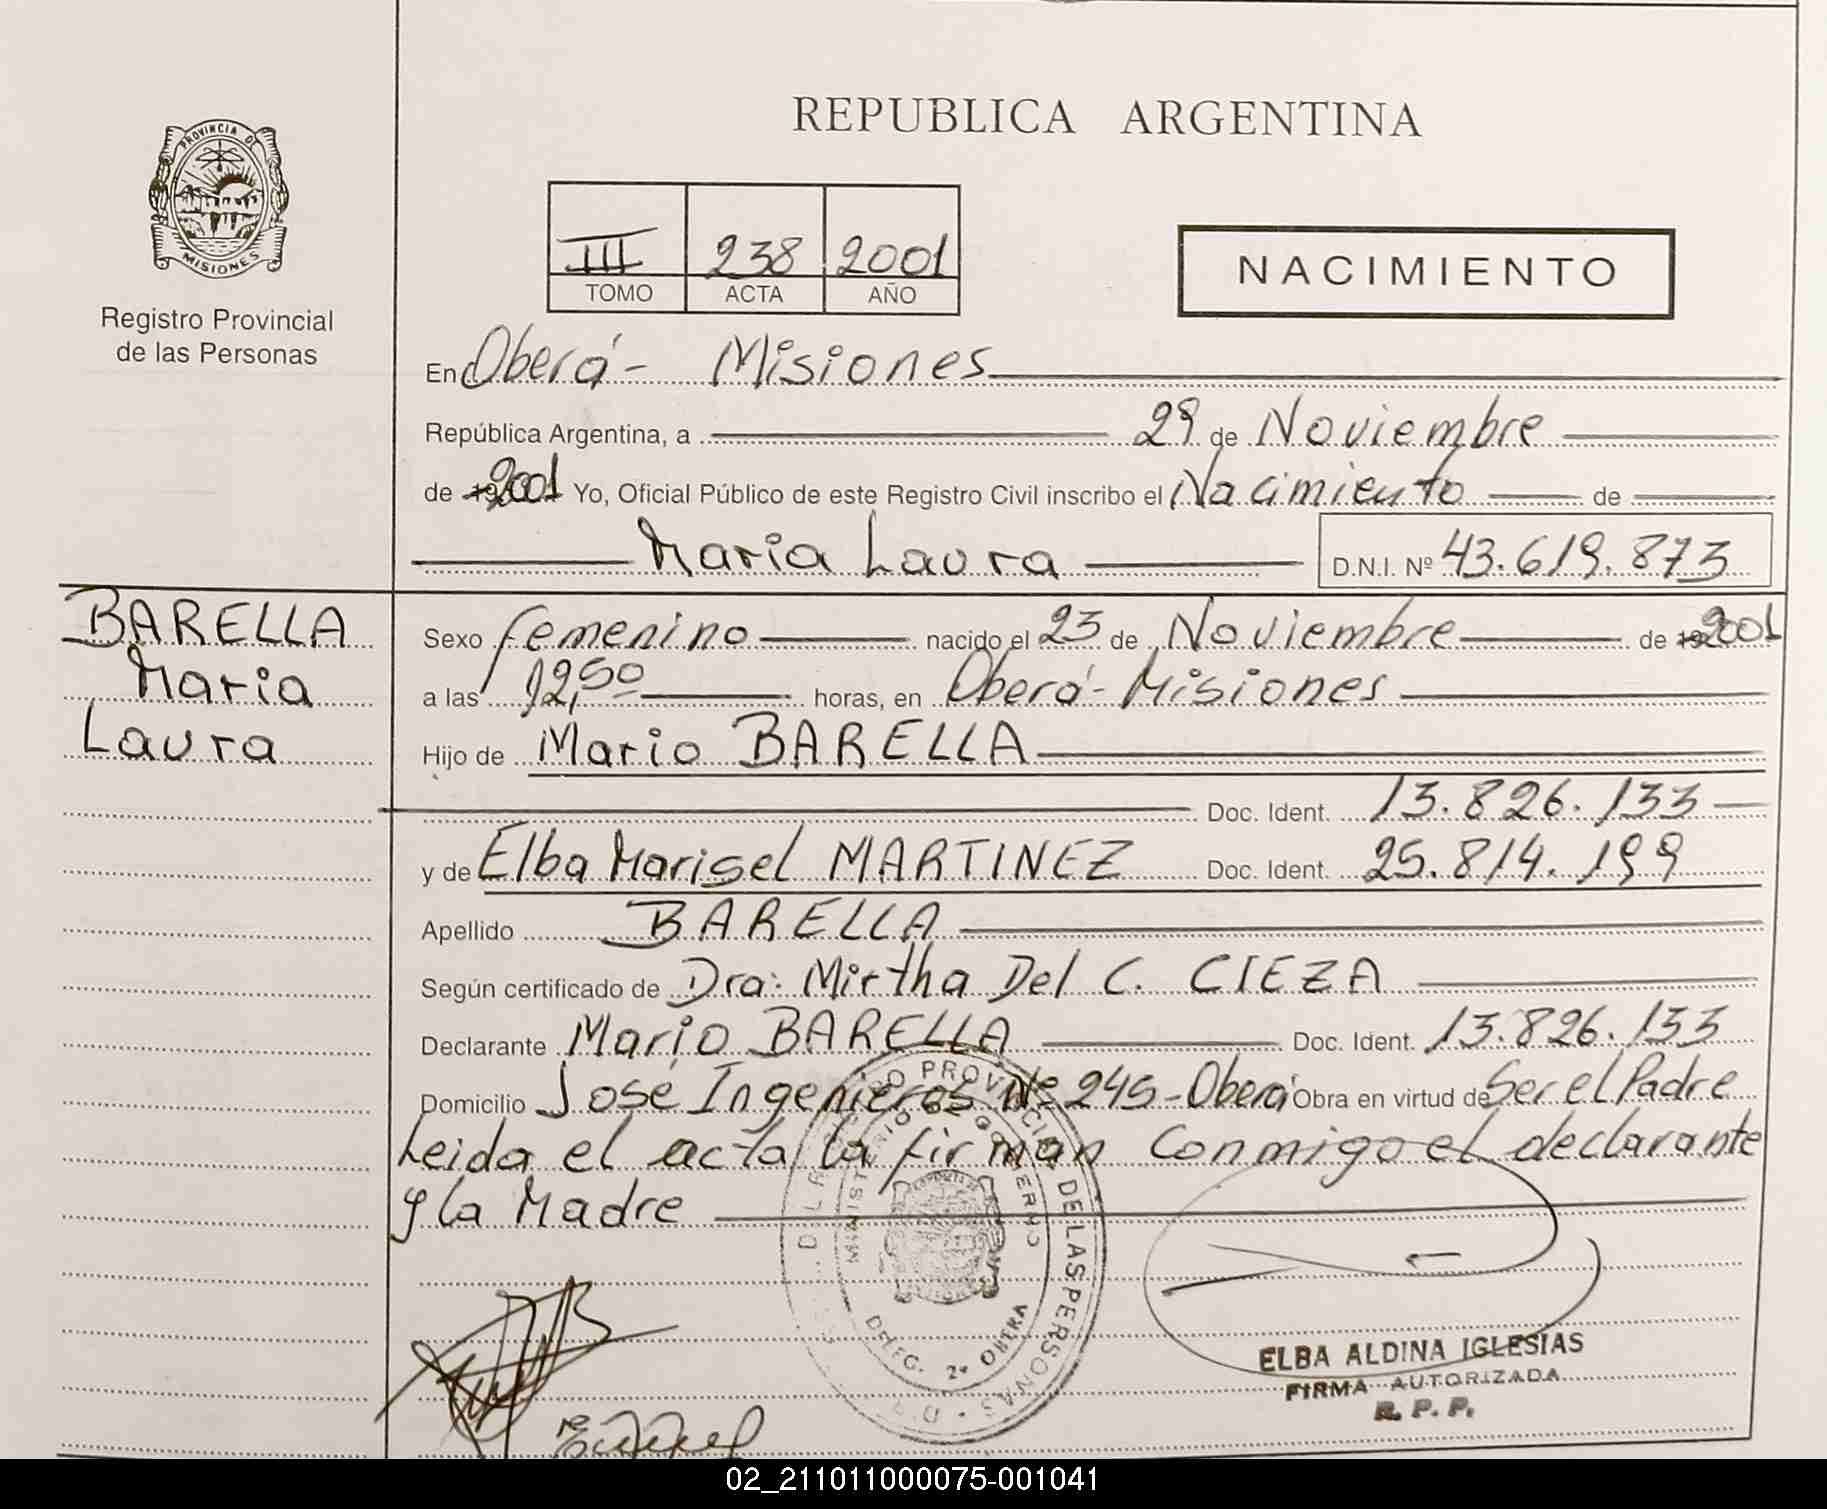 PROVINCIA DE
MISIONES
Registro Provincial
de las Personas
REPUBLICA ARGENTINA
III 238 2001
TOMO ACTA AÑO
NACIMIENTO
En Oberá - Misiones
República Argentina, a 29 de Noviembre
de 2001 Yo, Oficial Público de este Registro Civil inscribo el Nacimiento de
Maria Laura D.N.I. Nº 43.619.873
BARELLA
Maria
Laura
Sexo femenino nacido el 23 de Noviembre de 2001
a las 12,50 horas, en Oberá - Misiones
Hijo de Mario BARELLA
Doc. Ident. 13.826.133
y de Elba Marisel MARTINEZ Doc. Ident. 25.814.199
Apellido BARELLA
Según certificado de Dra: Mirtha Del C. CIEZA
Declarante Mario BARELLA Doc. Ident. 13.826.133
Domicilio José Ingenieros Nº 245 - Oberá Obra en virtud de Ser el Padre
Leida el acta la firman conmigo el declarante
y la Madre
PROVINCIAL DE LAS PERSONAS
MINISTERIO DE GOBIERNO
DELEG. 2ª OBERA
ELBA ALDINA IGLESIAS
FIRMA AUTORIZADA
R. P. P.
02_211011000075-001041